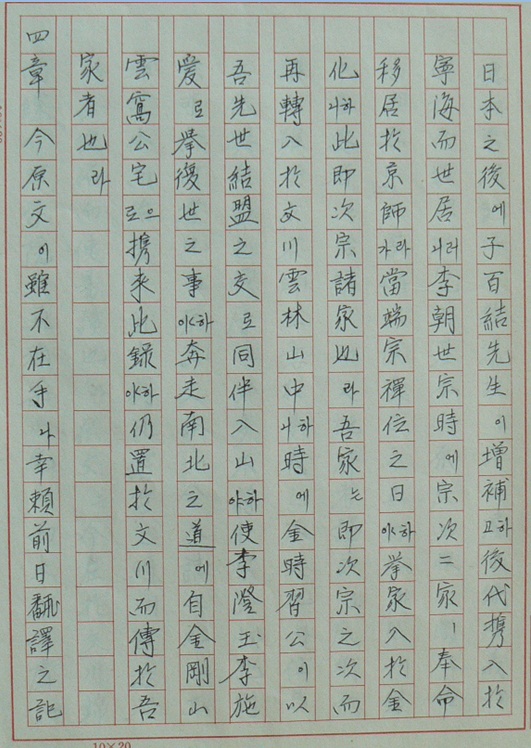 日本之後에子百結先生이增補하고後代携入於
寧海而世居러니李朝世宗時에宗次二家ㅣ奉命
移居於京師라가當端宗禪位之日하야擧家入於金
化하니此即次宗諸家也라吾家는即次宗之次而
再轉入於文川雲林山中하니時에金時習公이以
吾先世結盟之交로同伴入山하야使李澄玉李施
爱로擧復世之事하야奔走南北之道에自金剛山
雲窩公宅으로携來此錄하야仍置於文川而傳於吾
家者也라
四章 今原文이雖不在手나幸賴前日飜譯之記
10×20